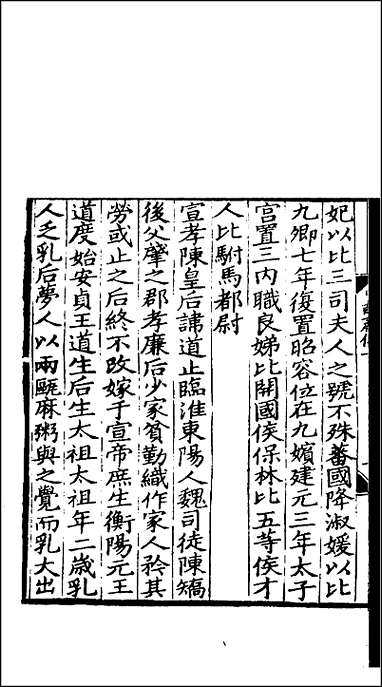 妃以比三司夫人之號不殊蕃國降淑媛以比
九卿七年復置昭容位在九嬪建元三年太子
宫置三内職良娣比開國侯保林比五等侯才
人比駙馬都尉
宣孝陳皇后諱道止臨淮東陽人魏司徒陳矯
後父肇之郡孝廉后少家貧勤織作家人矜其
勞或止之后終不改嫁于宣帝庶生衡陽元王
道度始安貞王道生后生太祖太祖年二歲乳
人乏乳后夢人以兩甌麻粥與之覺而乳大出